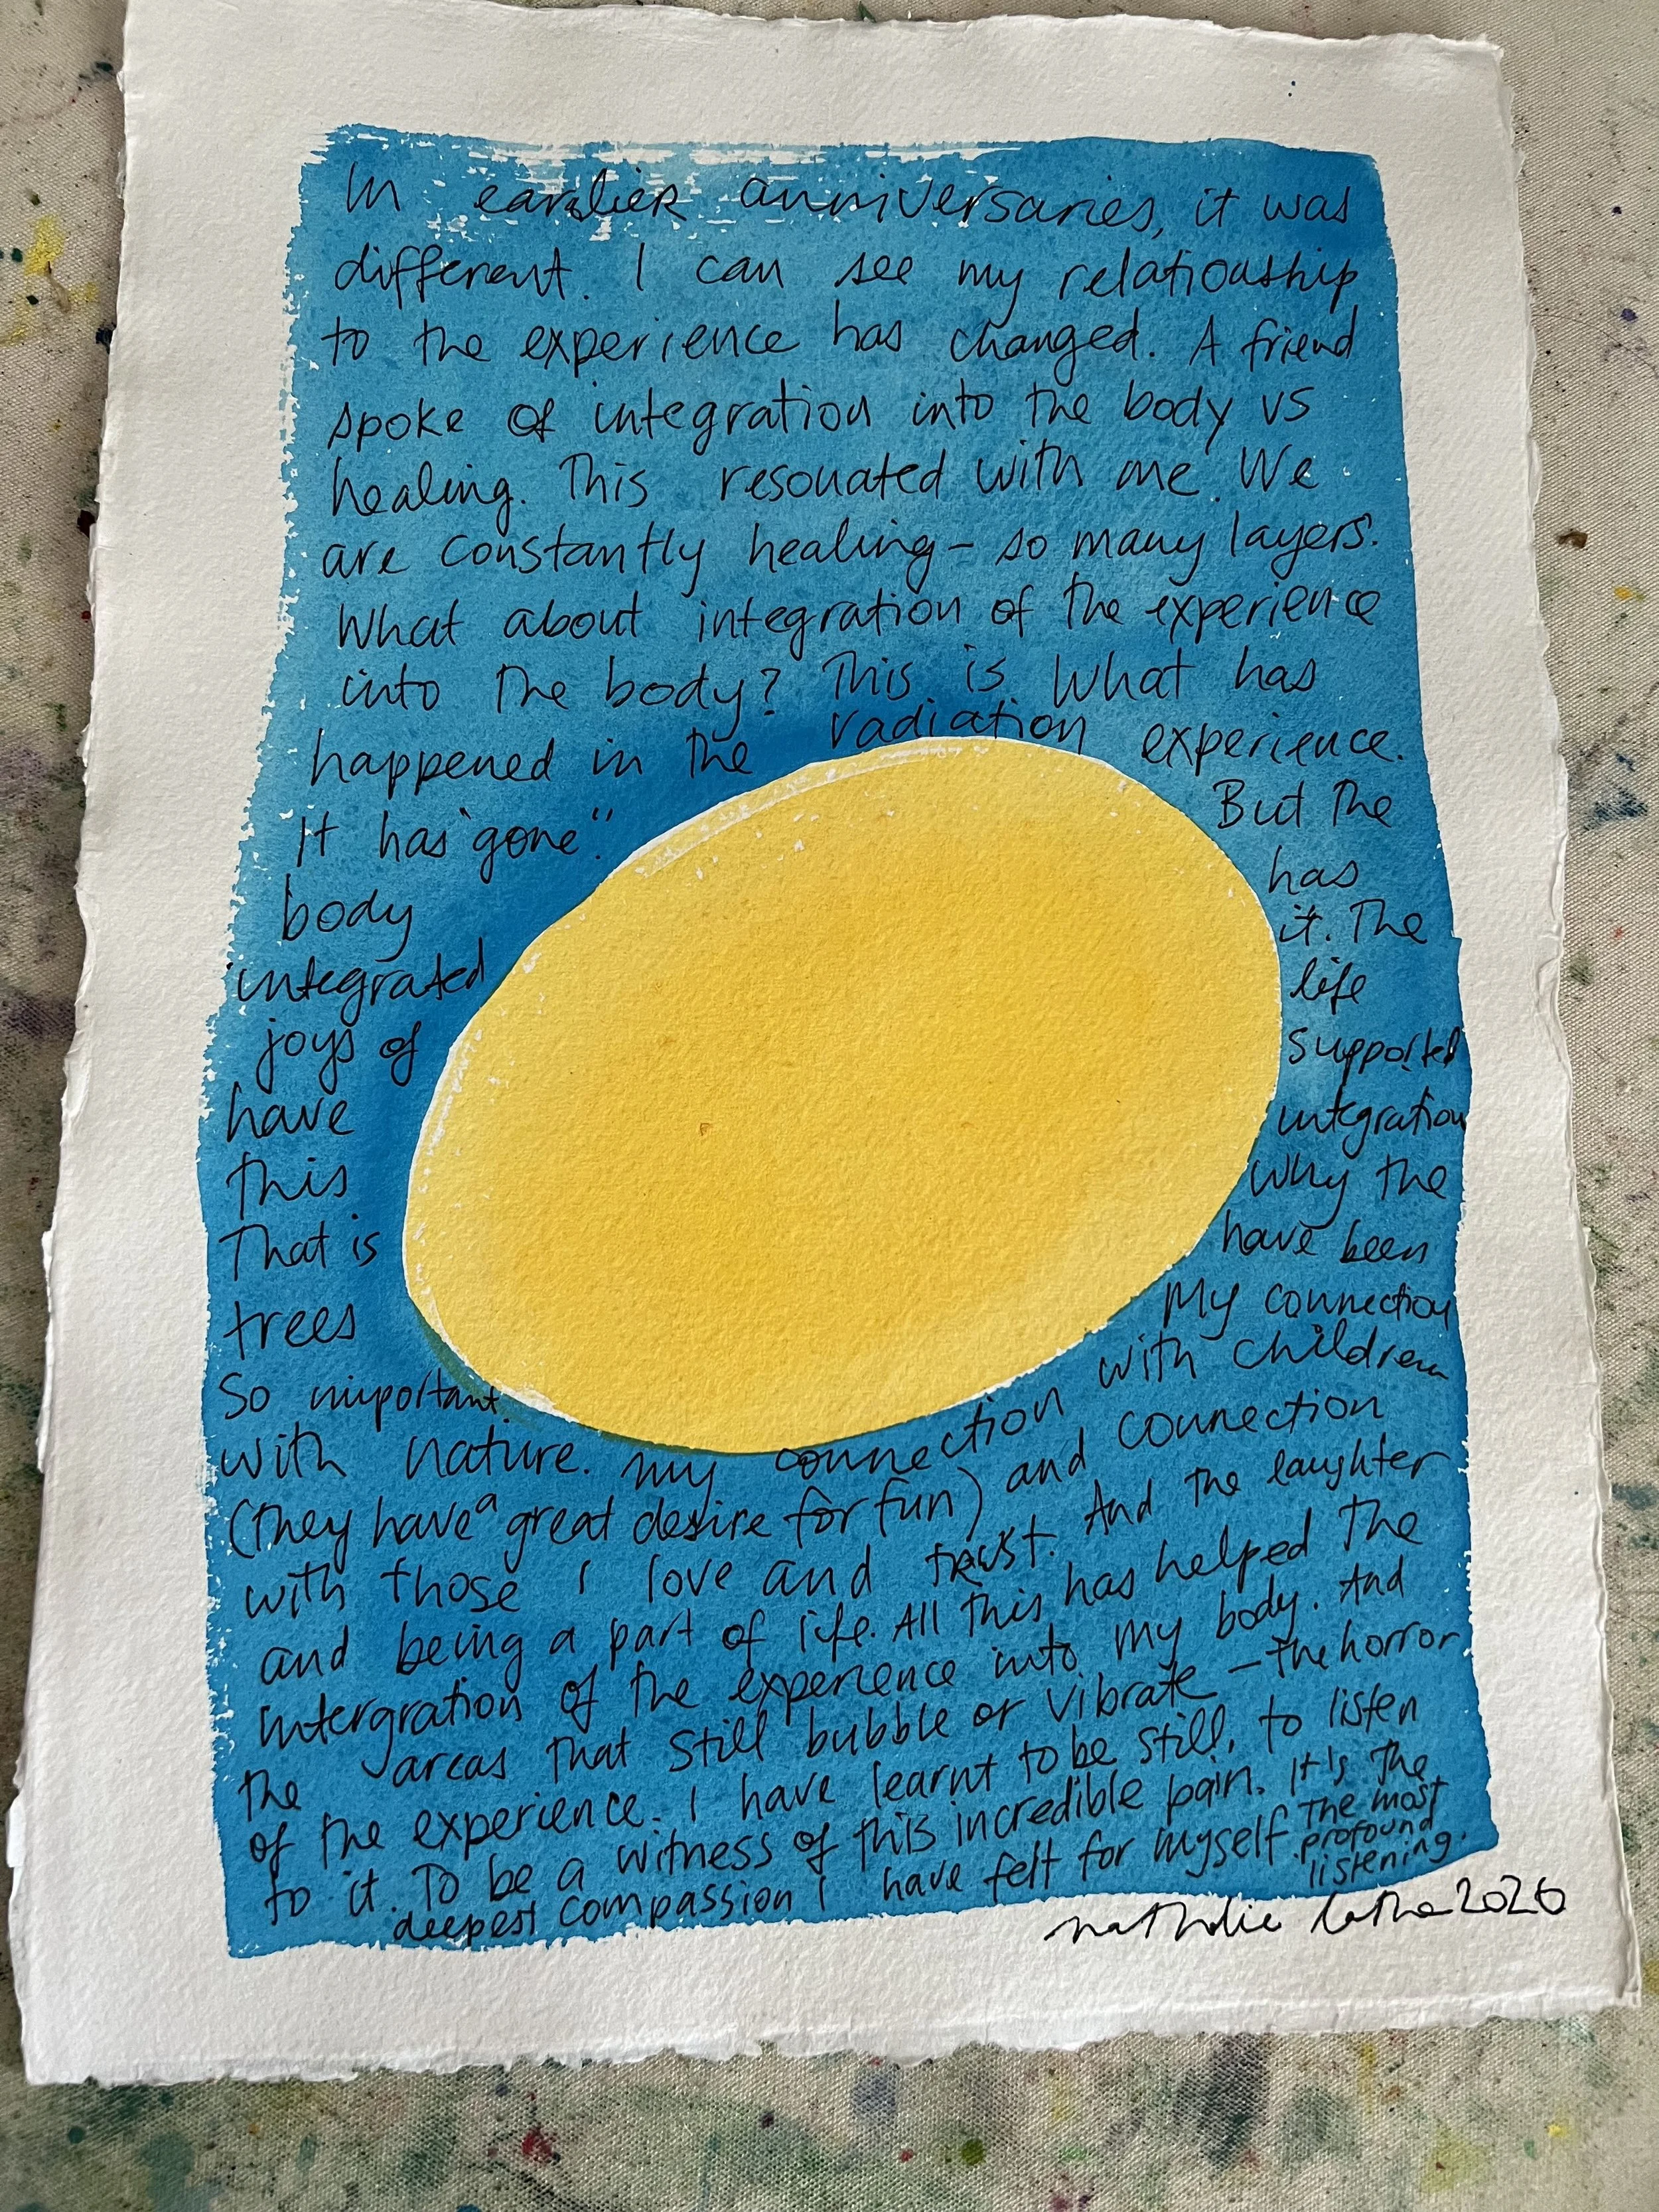 In earlier anniversaries, it was
different. I can see my relationship
to the experience has changed. A friend
spoke of integration into the body vs
healing. This resonated with me. We
are constantly healing – so many layers.
What about integration of the experience
into the body? This is what has
happened in the radiation experience.
It has "gone". But the
body has
integrated it. The
joys of life
have supported
this integration
That is why the
trees have been
So important. My connection
with nature. my connection with children
(they have a great desire for fun) and connection
with those I love and trust. And the laughter
and being a part of life. All this has helped the
intergration of the experience into my body. And
the areas that still bubble or vibrate – the horror
of the experience. I have learnt to be still, to listen
to it. To be a witness of this incredible pain. It's the
deepest compassion I have felt for myself. The most
profound
listening.
nathalie latham 2026